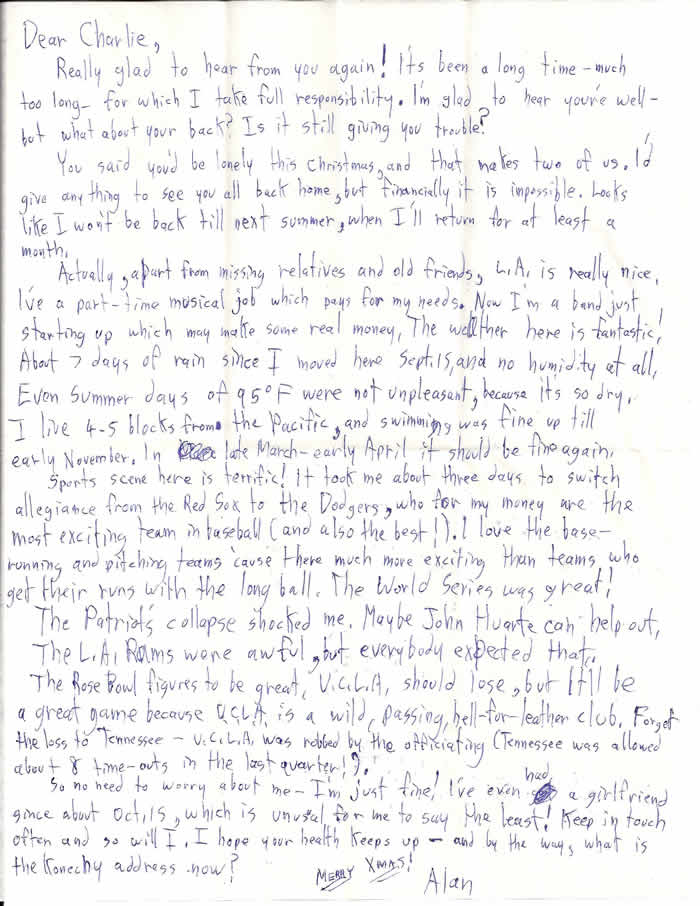 Dear Charlie,
Really glad to hear from you again! It's been a long time - much
too long - for which I take full responsibility. I'm glad to hear you're well -
but what about your back? Is it still giving you trouble?
You said you'd be lonely this Christmas, and that makes two of us. I'd
give anything to see you all back home, but financially it is impossible. Looks
like I won't be back till next summer, when I'll return for at least a
month.
Actually, apart from missing relatives and old friends, L.A. is really nice.
I've a part-time musical job which pays for my needs. Now I'm a band just
starting up which may make some real money. The weather here is fantastic!
About 7 days of rain since I moved here Sept. 15, and no humidity at all.
Even Summer days of 95°F were not unpleasant, because it's so dry.
I live 4-5 blocks from the Pacific, and swimming was fine up till
early November. In late March - early April it should be fine again.
Sports scene here is terrific! It took me about three days to switch
allegiance from the Red Sox to the Dodgers, who for my money are the
most exciting team in baseball (and also the best!). I love the base-
running and pitching teams 'cause there much more exciting than teams who
get their runs with the long ball. The World Series was great!
The Patriot's collapse shocked me. Maybe John Huarte can help out.
The L.A. Rams were awful, but everybody expected that.
The Rose Bowl figures to be great, U.C.L.A. should lose, but it'll be
a great game because UCLA is a wild, passing, hell-for-leather club. Forget
the loss to Tennessee - U.C.L.A. was robbed by the officiating (Tennessee was allowed
about 8 time-outs in the last quarter!).
So no need to worry about me - I'm just fine! I've even had a girlfriend
since about Oct. 15, which is unusual for me to say the least! Keep in touch
often and so will I. I hope your health keeps up - and by the way, what is
the Konechy address now?
MERRY XMAS!
Alan